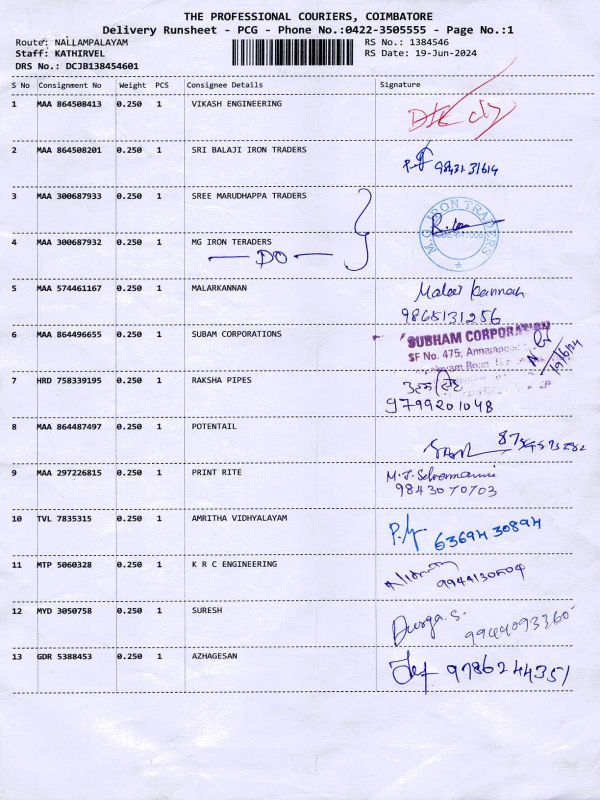 THE PROFESSIONAL COURIERS, COIMBATORE
Delivery Runsheet - PCG - Phone No.:0422-3505555 - Page No.:1
Route: NALLAMPALAYAM RS No.: 1384546
Staff: KATHIRVEL RS Date: 19-Jun-2024
DRS No.: DCJB138454601
S No Consignment No Weight PCS Consignee Details Signature
1 MAA 864508413 0.250 1 VIKASH ENGINEERING
2 MAA 864508201 0.250 1 SRI BALAJI IRON TRADERS
3 MAA 300687933 0.250 1 SREE MARUDHAPPA TRADERS
M.G. IRON TRADERS
4 MAA 300687932 0.250 1 MG IRON TERADERS
— DO —
5 MAA 574461167 0.250 1 MALARKANNAN Malar Kannan
9865131256
6 MAA 864496655 0.250 1 SUBAM CORPORATIONS SUBHAM CORPORATION
SF No. 475,
19/6/24
7 HRD 758339195 0.250 1 RAKSHA PIPES
9799201048
8 MAA 864487497 0.250 1 POTENTAIL
9 MAA 297226815 0.250 1 PRINT RITE
9843070703
10 TVL 7835315 0.250 1 AMRITHA VIDHYALAYAM 6369430894
11 MTP 5060328 0.250 1 K R C ENGINEERING
9944130504
12 MYD 3050758 0.250 1 SURESH Durga S.
9944093360
13 GDR 5388453 0.250 1 AZHAGESAN 9786244351